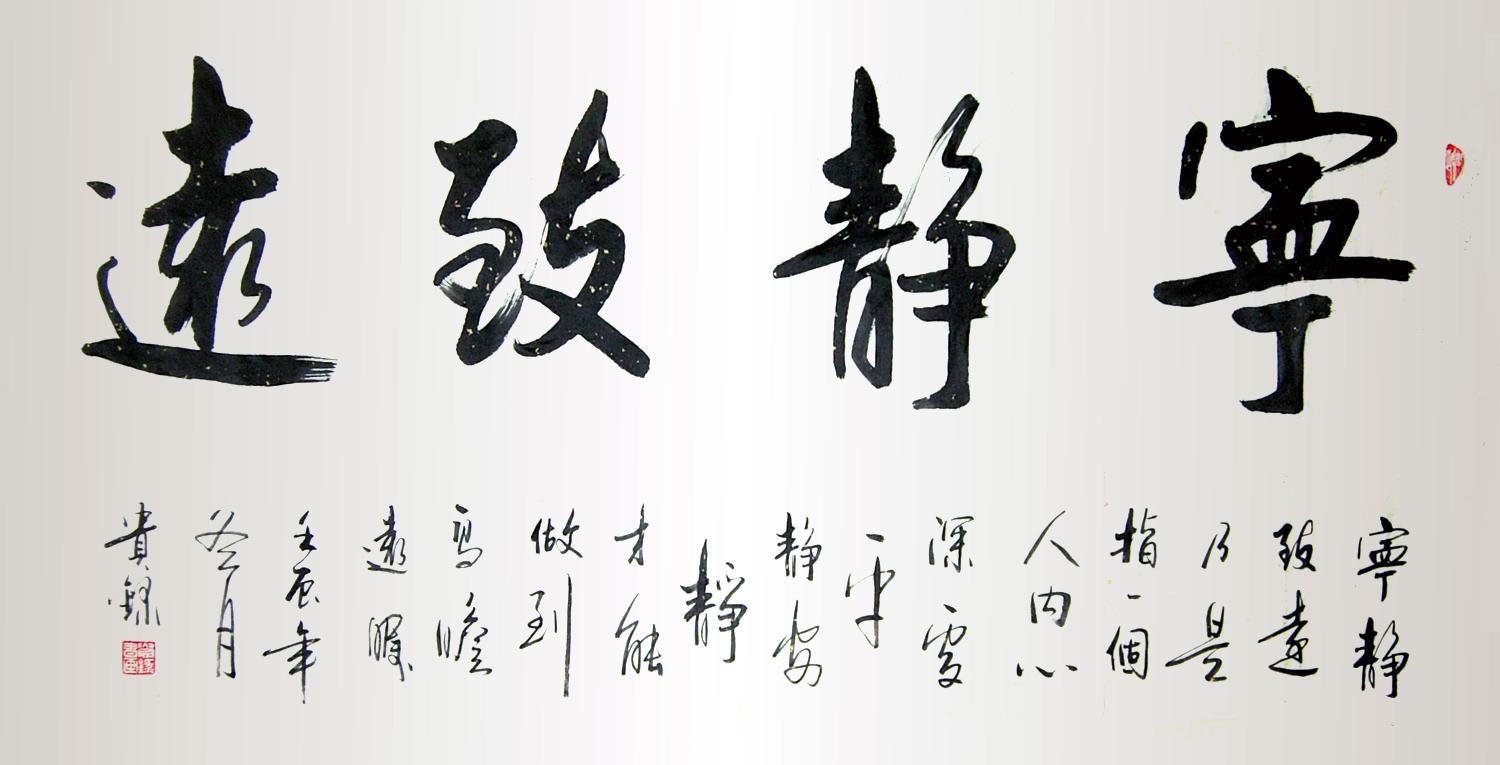 寧静致遠
寧静
致遠
乃是
指一個
人内心
深處
平
静安
靜
才能
做到
高瞻
遠矚
壬辰年
冬月
貴